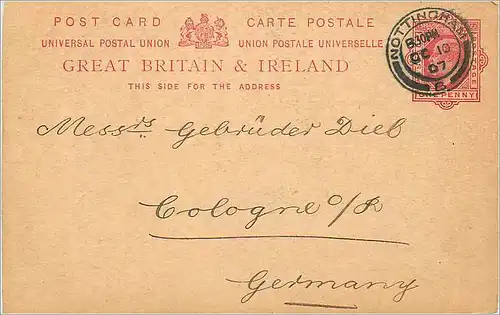 POST CARD CARTE POSTALE
UNIVERSAL POSTAL UNION UNION POSTALE UNIVERSELLE
GREAT BRITAIN & IRELAND
THIS SIDE FOR THE ADDRESS
NOTTINGHAM
8.30PM
10
07
ONE PENNY
Messrs Gebrüder Dieb
Cologne o/R
Germany